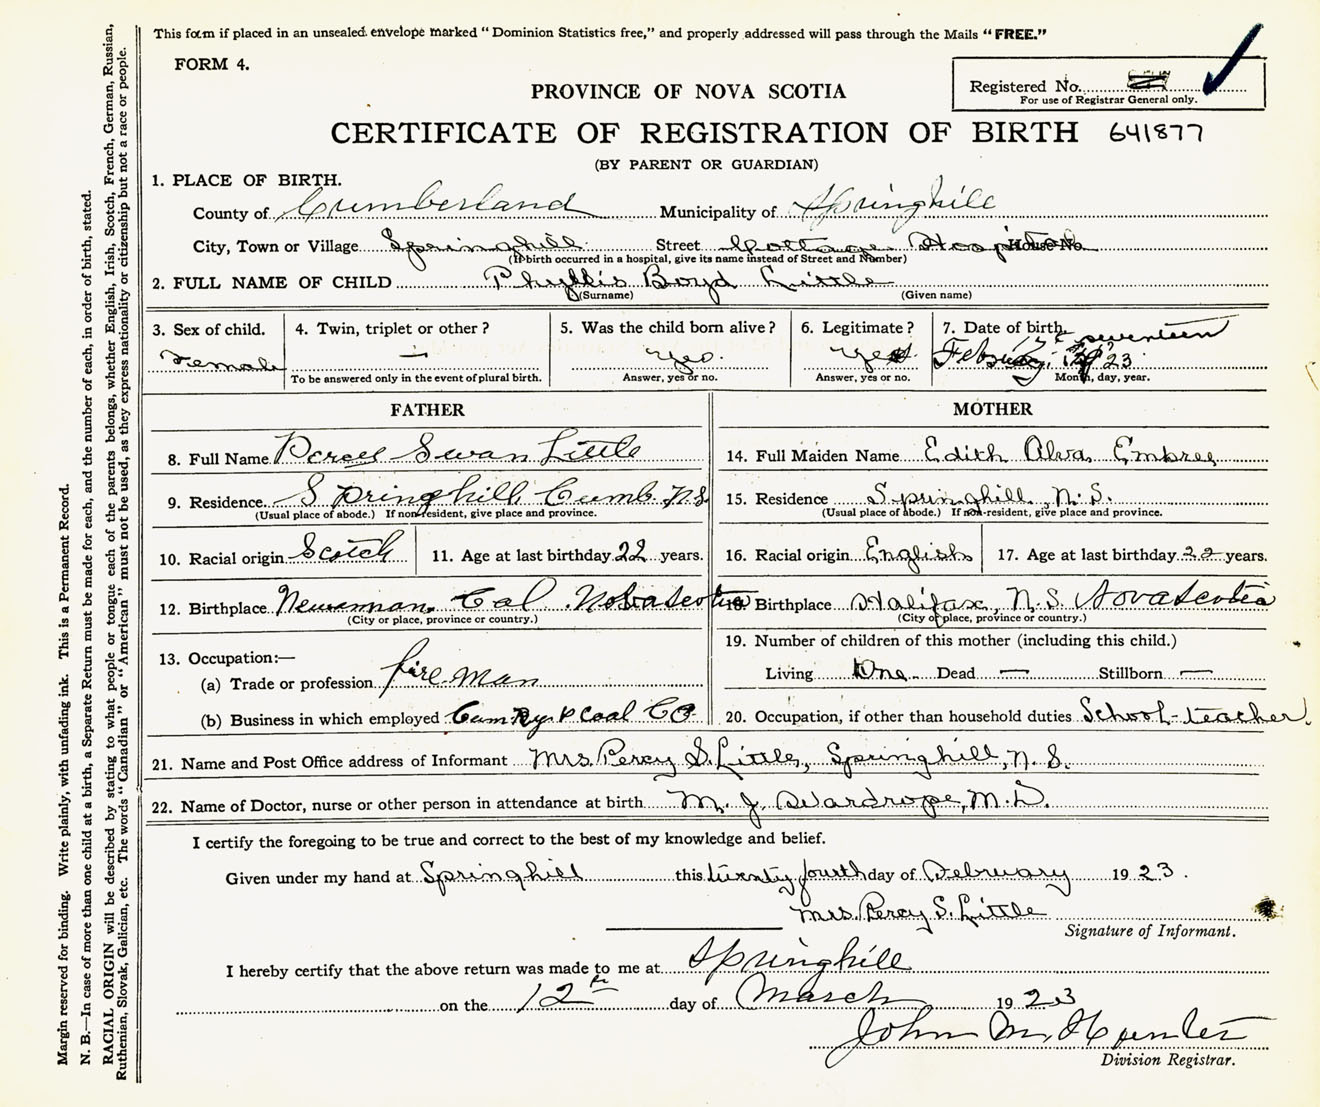 This form if placed in an unsealed envelope marked "Dominion Statistics free," and properly addressed will pass through the Mails "FREE."
FORM 4.
Registered No.
For use of Registrar General only.
PROVINCE OF NOVA SCOTIA
CERTIFICATE OF REGISTRATION OF BIRTH 641877
(BY PARENT OR GUARDIAN)
1. PLACE OF BIRTH.
County of Cumberland Municipality of Springhill
City, Town or Village Springhill Street Cottage Hospital House No.
(If birth occurred in a hospital, give its name instead of Street and Number)
2. FULL NAME OF CHILD Phyllis Boyd Little
(Surname) (Given name)
3. Sex of child. Female
4. Twin, triplet or other? —
To be answered only in the event of plural birth.
5. Was the child born alive? Yes.
Answer, yes or no.
6. Legitimate? Yes
Answer, yes or no.
7. Date of birth seventeen
February 1923
Month, day, year.
FATHER
8. Full Name Percy Swan Little
9. Residence Springhill Cumb. N.S.
(Usual place of abode.) If non-resident, give place and province.
10. Racial origin Scotch 11. Age at last birthday 22 years.
12. Birthplace Cal. Nova Scotia
(City or place, province or country.)
13. Occupation:—
(a) Trade or profession fire man
(b) Business in which employed Cum Ry & Coal Co.
MOTHER
14. Full Maiden Name Edith Alva Embree
15. Residence Springhill, N.S.
(Usual place of abode.) If non-resident, give place and province.
16. Racial origin English 17. Age at last birthday 22 years.
18. Birthplace Halifax, N.S. Nova Scotia
(City or place, province or country.)
19. Number of children of this mother (including this child.)
Living One. Dead — Stillborn —
20. Occupation, if other than household duties School-teacher.
21. Name and Post Office address of Informant Mrs. Percy S. Little, Springhill, N.S.
22. Name of Doctor, nurse or other person in attendance at birth M. J. Wardrope, M.D.
I certify the foregoing to be true and correct to the best of my knowledge and belief.
Given under my hand at Springhill this twenty fourth day of February 1923.
Mrs. Percy S. Little
Signature of Informant.
I hereby certify that the above return was made to me at Springhill
on the 12th day of March 1923
John M. Hunter
Division Registrar.
Margin reserved for binding. Write plainly, with unfading ink. This is a Permanent Record.
N. B.—In case of more than one child at a birth, a Separate Return must be made for each, and the number of each, in order of birth, stated.
RACIAL ORIGIN will be described by stating to what people or tongue each of the parents belongs, whether English, Irish, Scotch, French, German, Russian,
Ruthenian, Slovak, Galician, etc. The words "Canadian" or "American" must not be used, as they express nationality or citizenship but not a race or people.